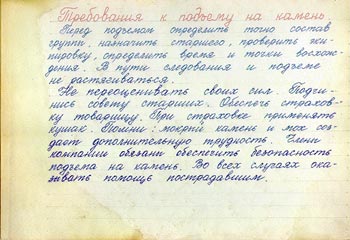 Требования к подъему на камень
Перед подъемом определить точно состав
группы, назначить старшего, проверить эки-
пировку, определить время и точки восхож-
дения. В пути следования и подъеме
не растягиваться.
Не переоценивать своих сил. Подчи-
нись совету старших. Обеспечь страхов-
ку товарищу. При страховке применять
кушак. Помни: мокрый камень и мох соз-
дает дополнительную трудность. Члены
компании обязаны обеспечить безопасность
подъема на камень. Во всех случаях ока-
зывать помощь пострадавшим.